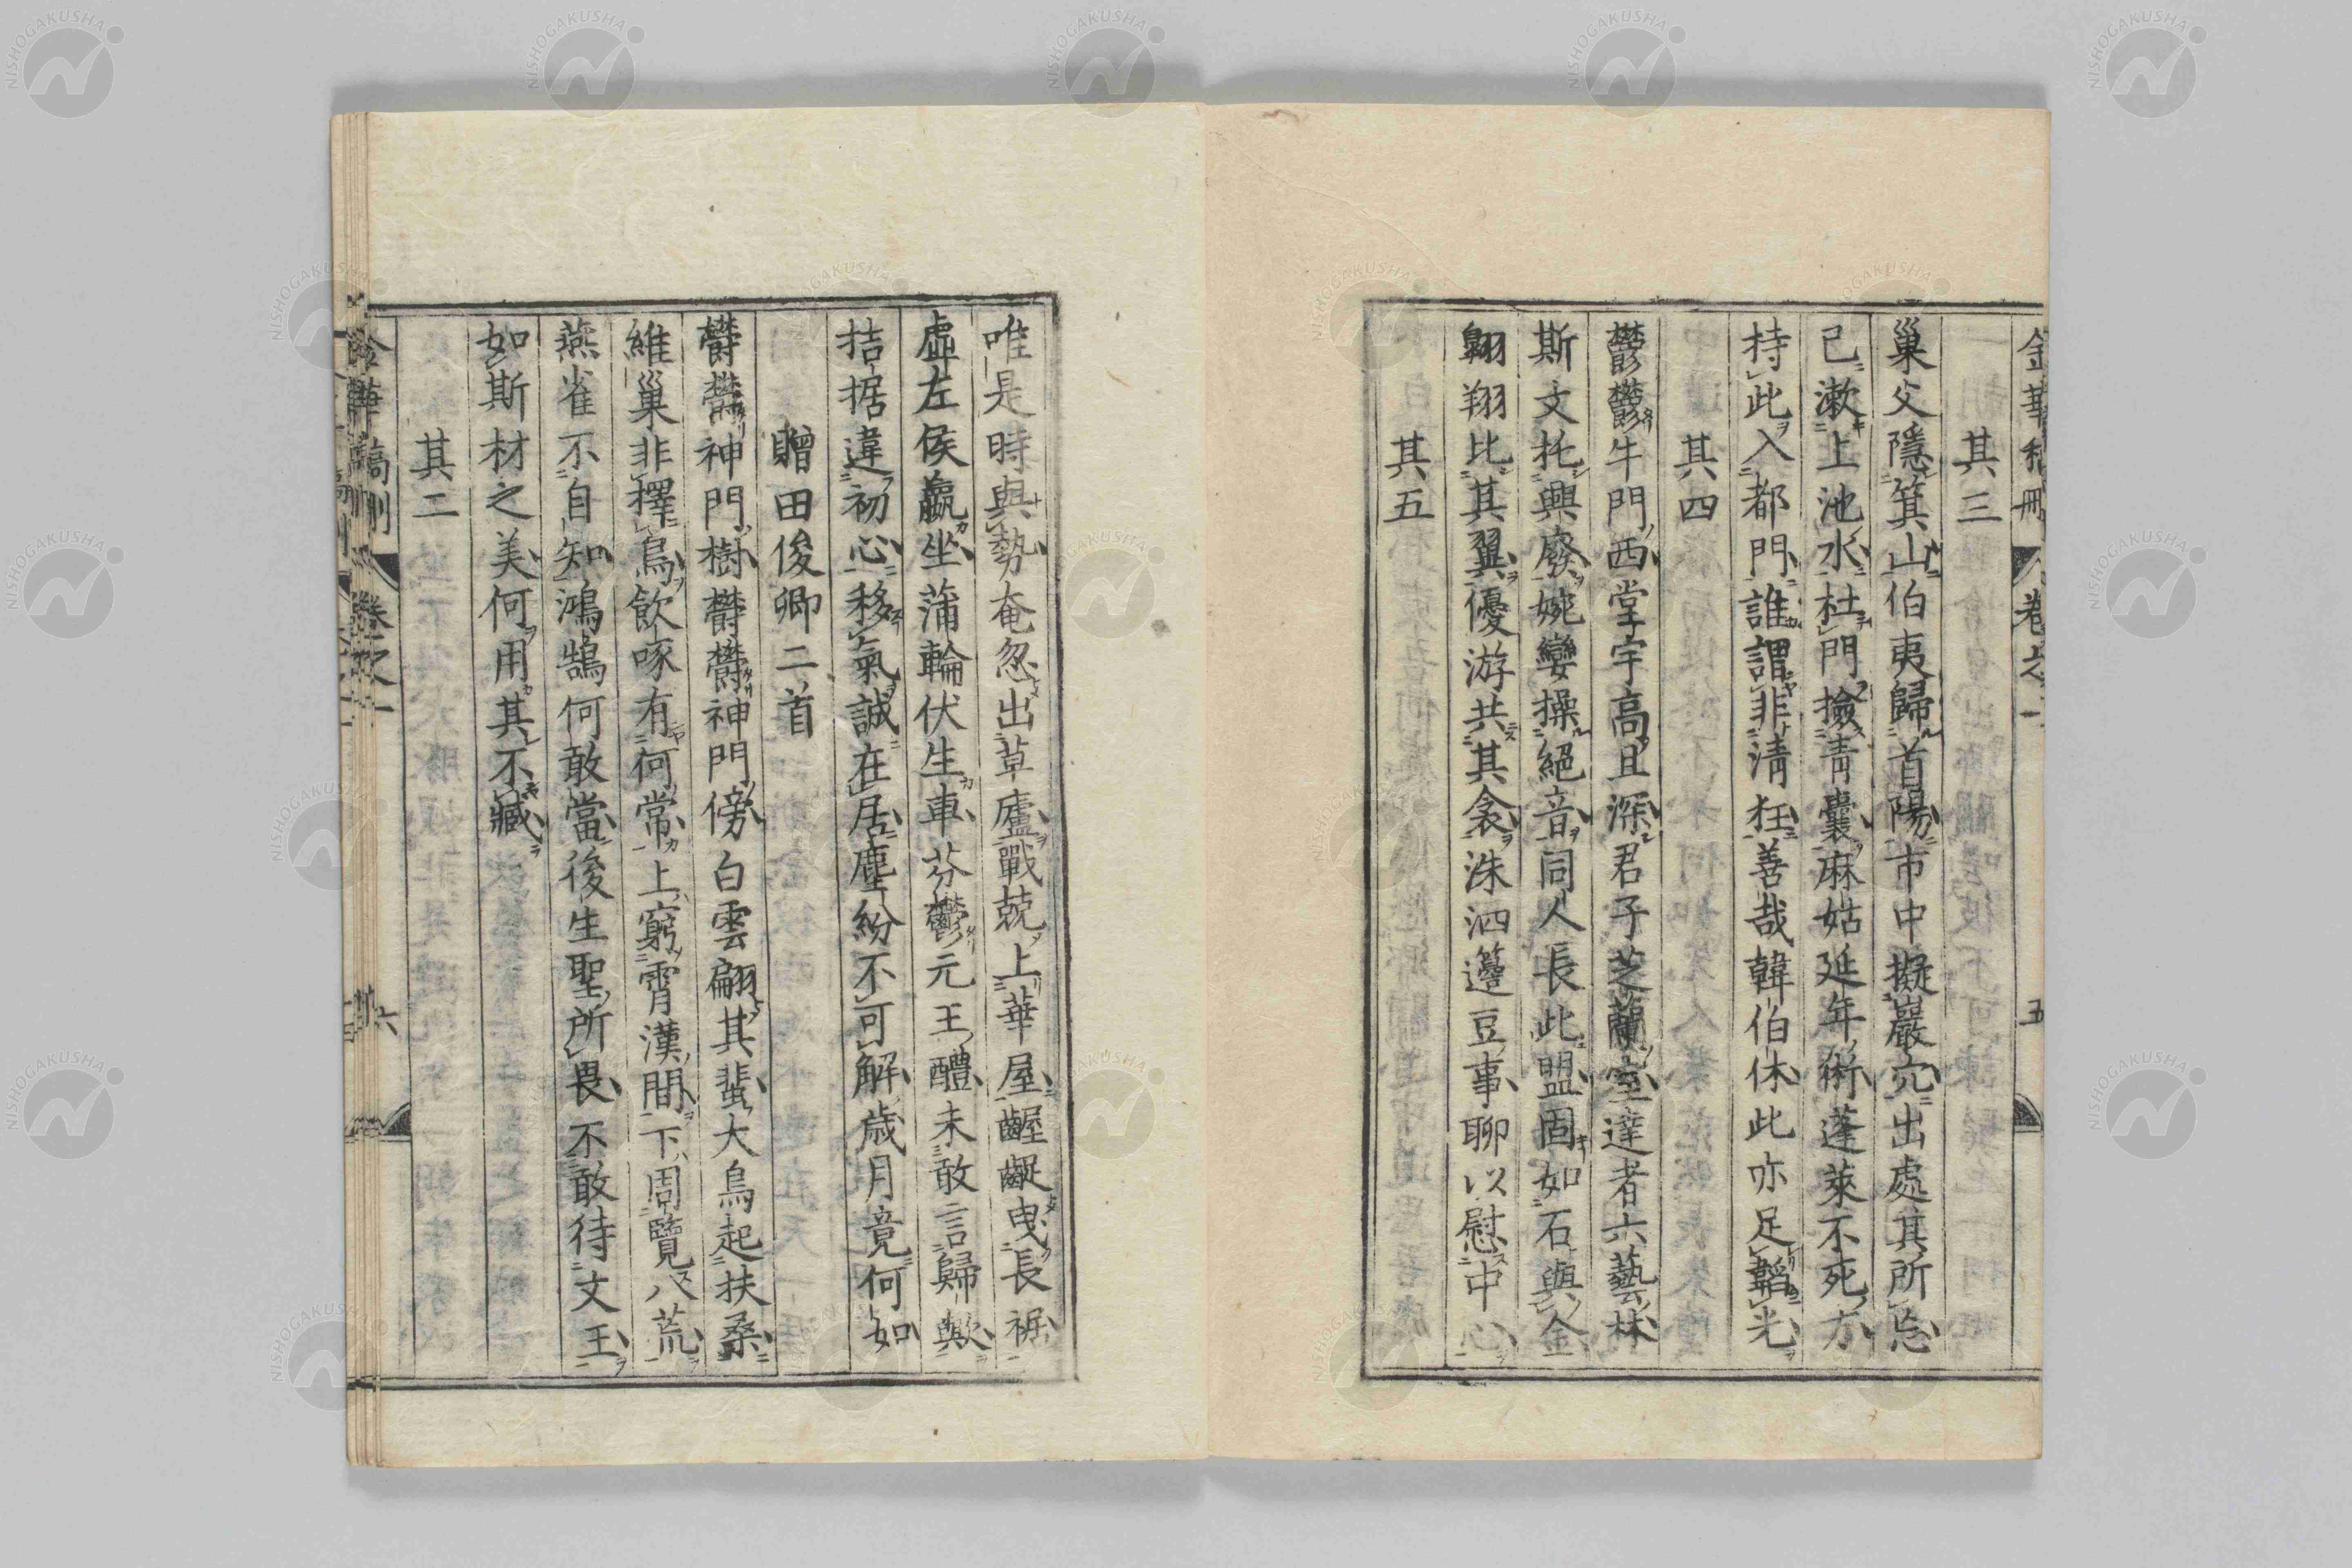 金華稿刪 卷之一 五
其三
巢父隱箕山伯夷歸首陽市中擬巖穴出處其所忘
已漱上池水杜門撿青囊麻姑延年術蓬萊不死方
持此入都門誰謂非清狂善哉韓伯休此亦足韜光
其四
鬱鬱牛門西堂宇高且深君子芝蘭室達者六藝林
斯文托興廢婉孌操絕音同人長此盟固如石與金
翱翔比其翼優游共其衾洙泗籩豆事聊以慰中心
其五
唯是時與勢奄忽出草廬戰兢上華屋齷齪曳長裾
虛左侯嬴坐蒲輪伏生車芬鬱元王醴未敢言歸歟
拮据違初心移氣誠在居塵紛不可解歲月竟何如
贈田俊卿二首
鬱鬱神門樹鬱鬱神門傍白雲翩其蜚大鳥起扶桑
維巢非擇焉飲啄有何常上窮霄漢間下周覽八荒
燕雀不自知鴻鵠何敢當後生聖所畏不敢待文王
如斯材之美何用其不臧
其二
金華稿刪 卷之一 六
NISHOGAKUSHA